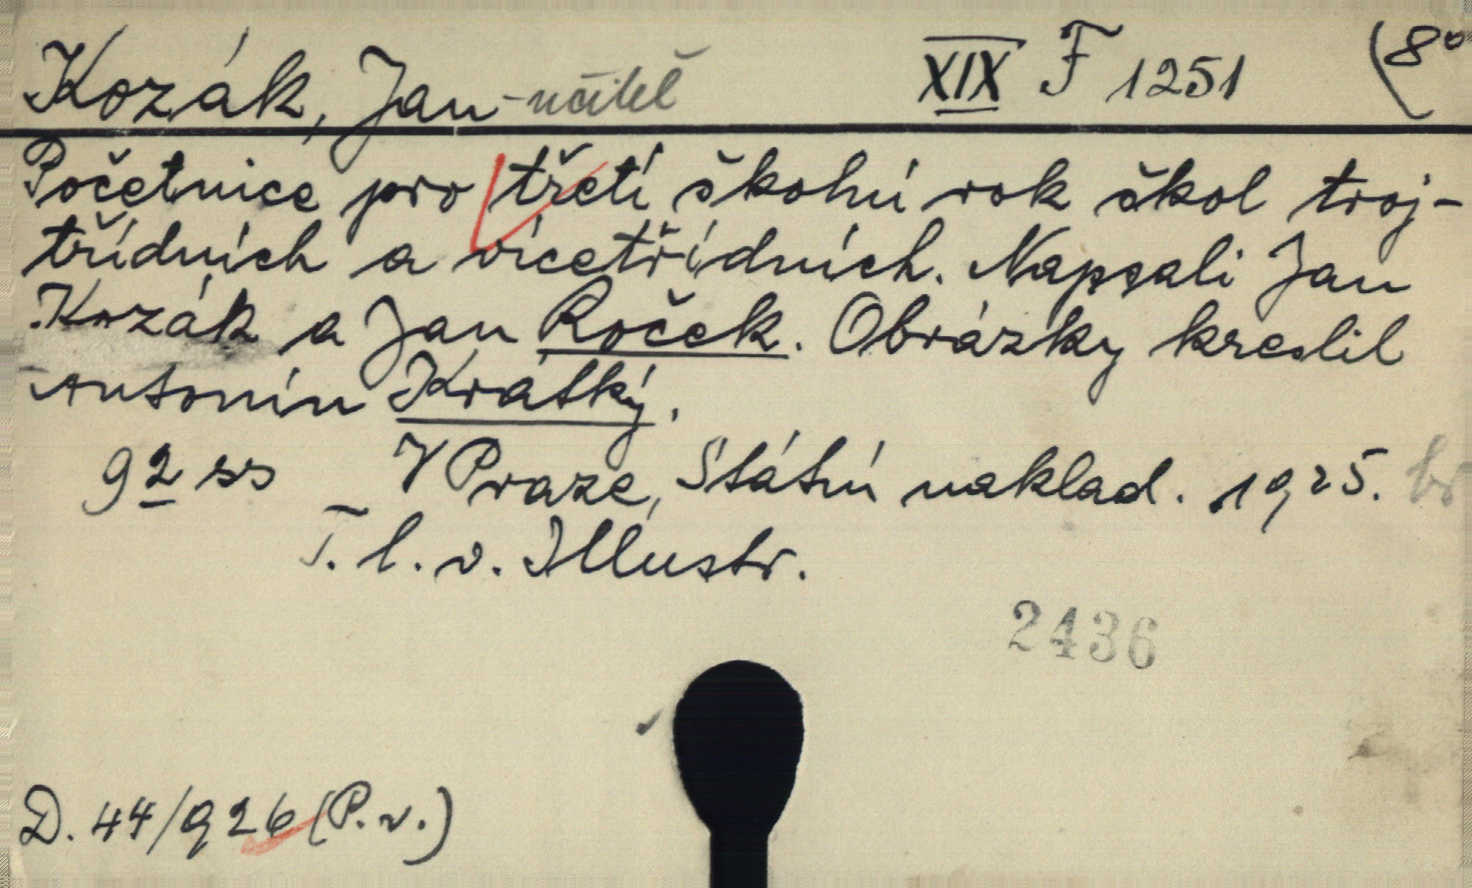 Kozák, Jan - učitel XIX F 1251 (8°
Početnice pro třetí školní rok škol troj-
třídních a vícetřídních. Napsali Jan
Kozák a Jan Roček. Obrázky kreslil
Antonín Krátký.
92 ss V Praze, Státní naklad. 1925. br
T. l. v. Illustr.
2436
D. 44/926 (P. v.)